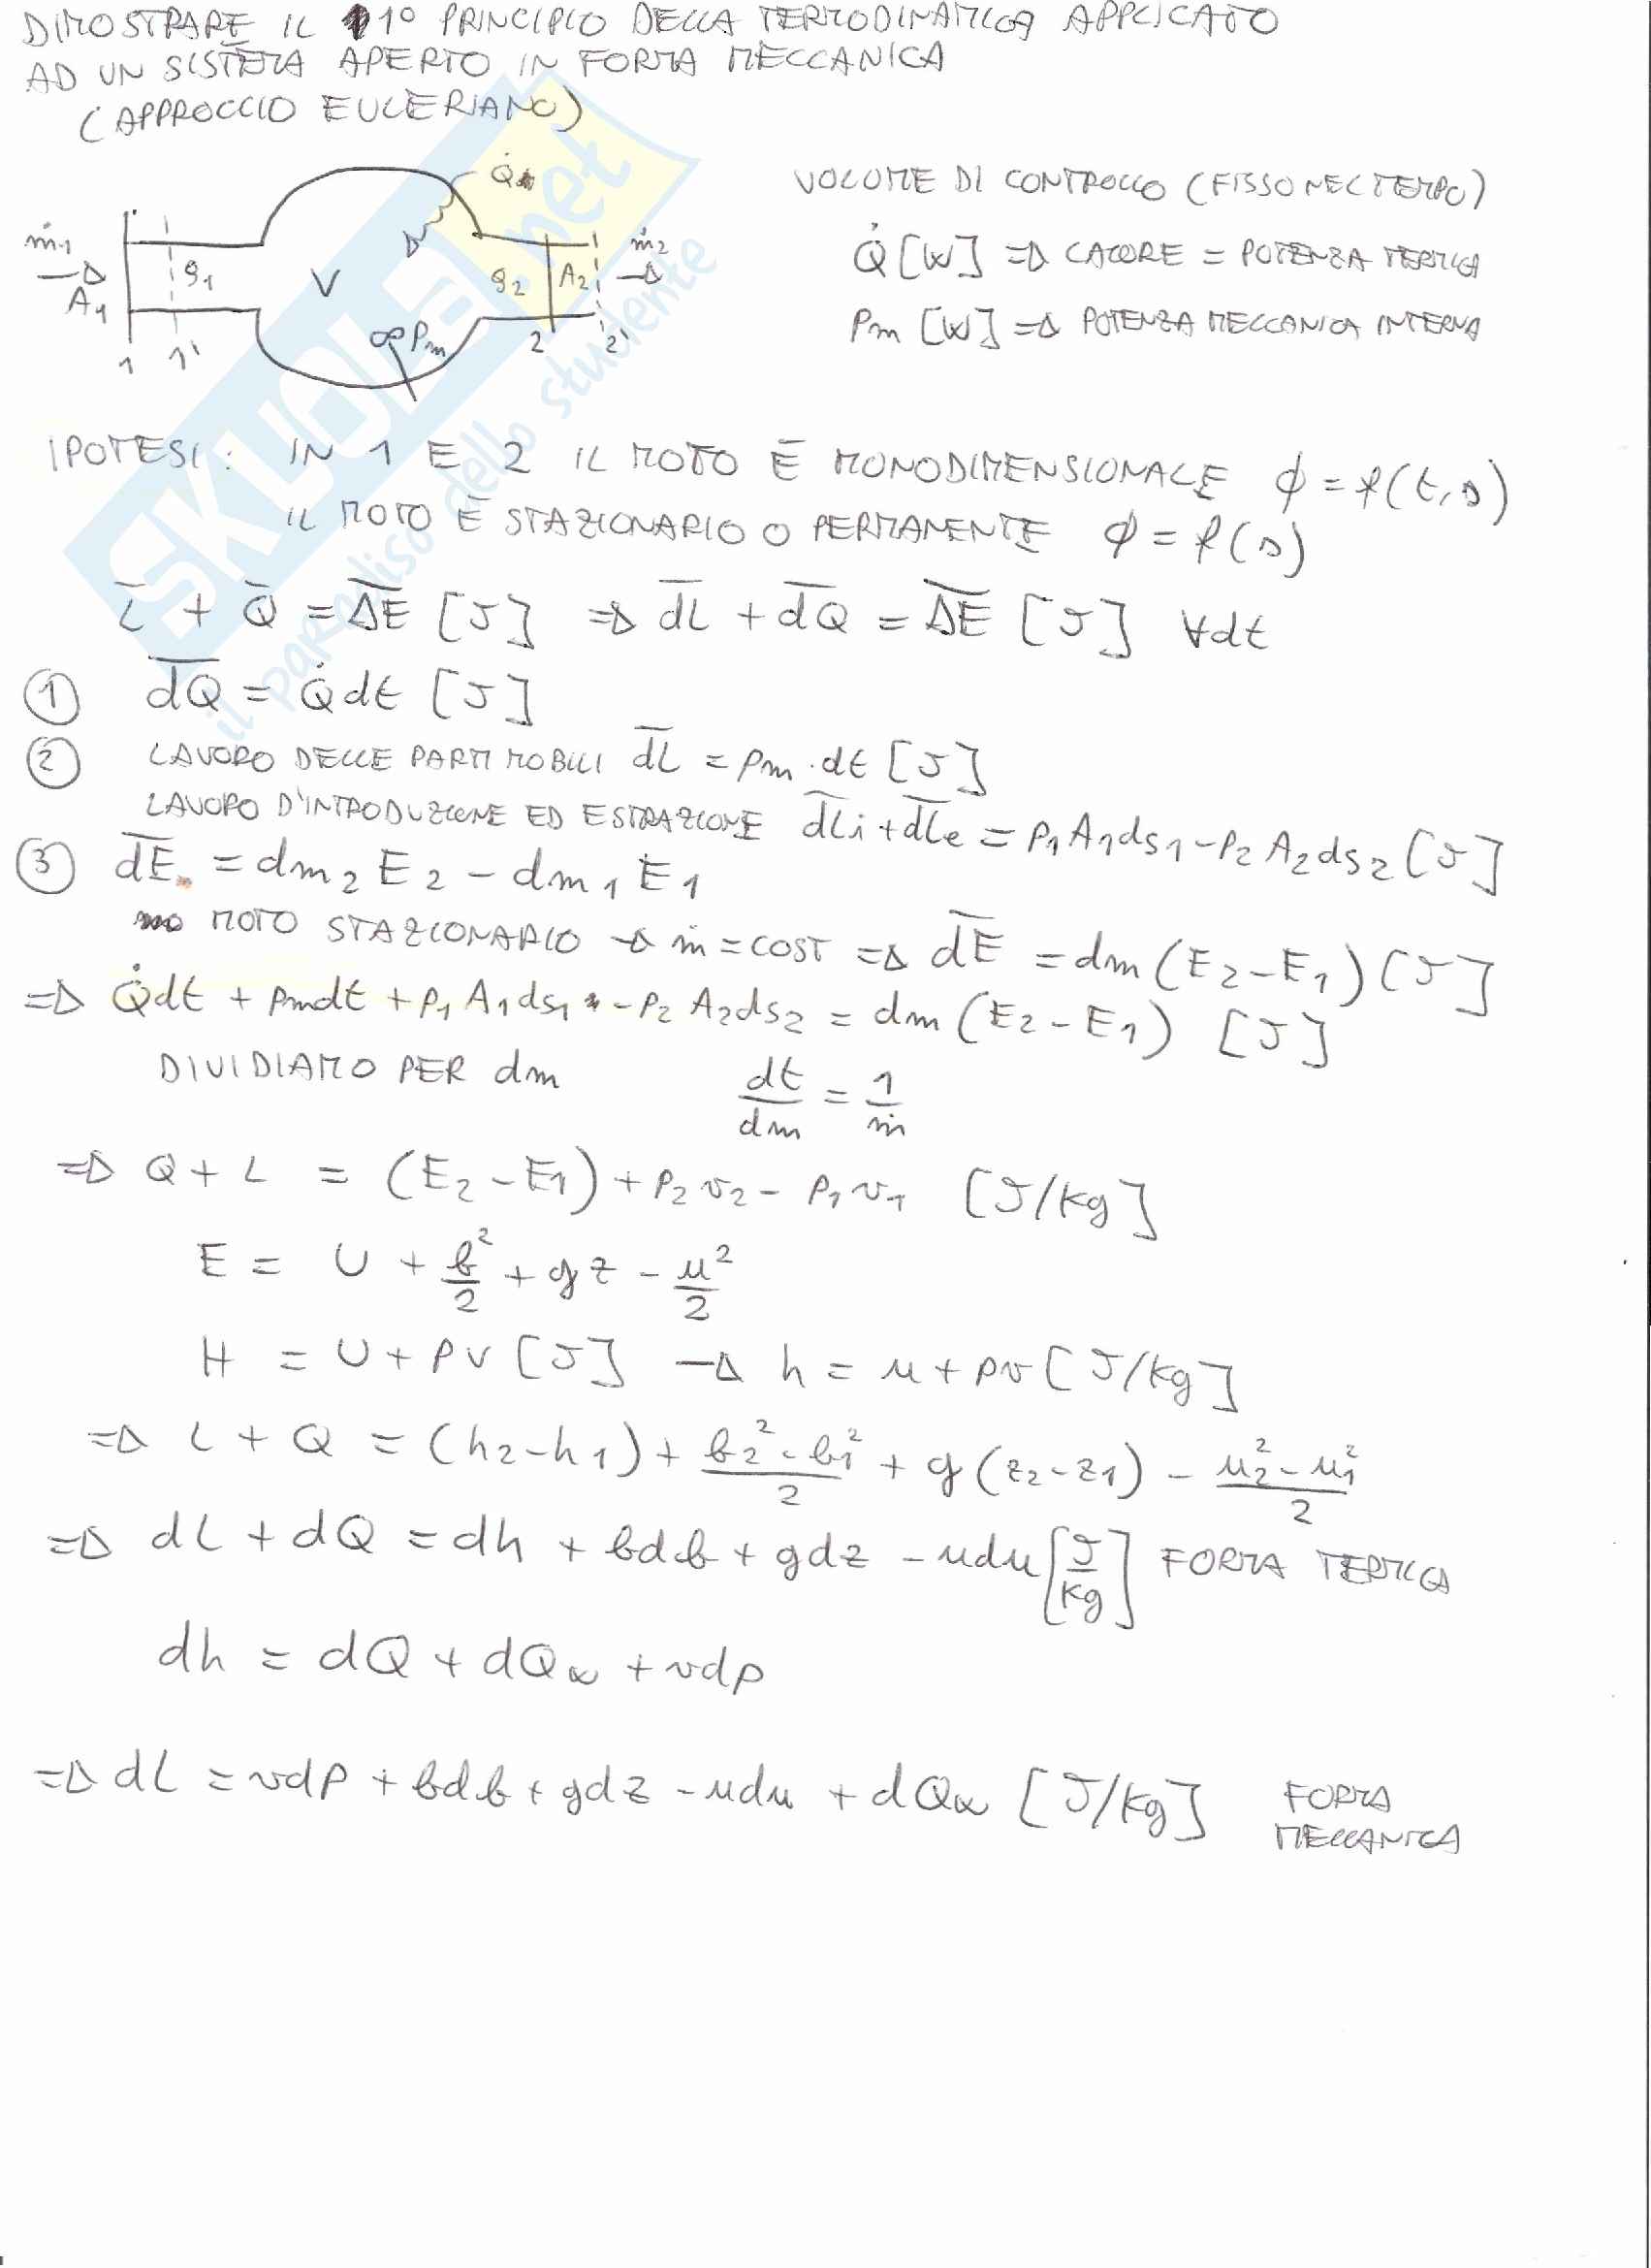 DIMOSTRARE IL 1° PRINCIPIO DELLA TERMODINAMICA APPLICATO
AD UN SISTEMA APERTO IN FORMA MECCANICA
(APPROCCIO EULERIANO)
VOLUME DI CONTROLLO (FISSO NEL TEMPO)
Q̇ [W] => CALORE = POTENZA TERMICA
Pm [W] => POTENZA MECCANICA INTERNA
ṁ1 A1 ρ1 V Q̇ Pm ρ2 A2 ṁ2
1 1' 2 2'
IPOTESI: IN 1 E 2 IL MOTO È MONODIMENSIONALE ϕ = f(t, s)
IL MOTO È STAZIONARIO O PERMANENTE ϕ = f(s)
L̅ + Q̅ = Δ̅E̅ [J] => d̅L̅ + d̅Q̅ = Δ̅E̅ [J] ∀dt
① d̅Q̅ = Q̇dt [J]
② LAVORO DELLE PARTI MOBILI d̅L̅ = Pm · dt [J]
LAVORO D'INTRODUZIONE ED ESTRAZIONE d̅L̅i + d̅L̅e = P1 A1 ds1 - P2 A2 ds2 [J]
③ d̅E̅ = dm2 E2 - dm1 E1
MOTO STAZIONARIO → ṁ = COST => d̅E̅ = dm (E2 - E1) [J]
=> Q̇dt + Pmdt + P1 A1 ds1 - P2 A2 ds2 = dm (E2 - E1) [J]
DIVIDIAMO PER dm dt/dm = 1/ṁ
=> Q + L = (E2 - E1) + P2 v2 - P1 v1 [J/kg]
E = U + b²/2 + gz - u²/2
H = U + PV [J] → h = u + pv [J/kg]
=> L + Q = (h2 - h1) + (b2² - b1²)/2 + g (z2 - z1) - (u2² - u1²)/2
=> dL + dQ = dh + bdb + gdz - udu [J/kg] FORMA TERMICA
dh = dQ + dQα + vdp
=> dL = vdP + bdb + gdz - udu + dQα [J/kg] FORMA
MECCANICA
SKUOLA.net
il paradiso dello studente